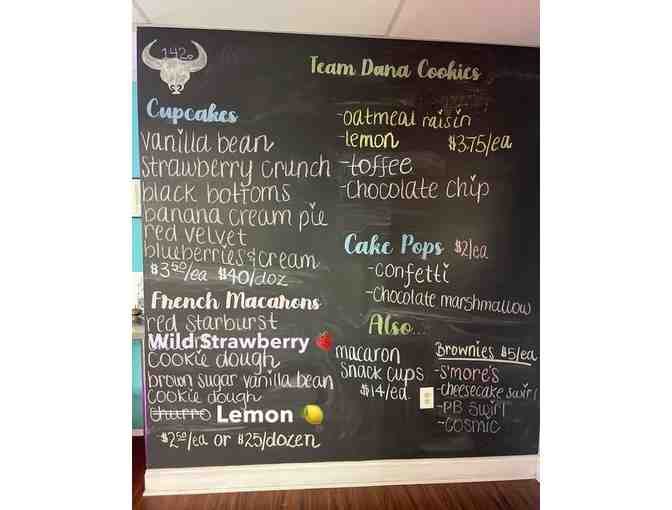 1420
Team Dana Cookies
-oatmeal raisin
-lemon $3.75/ea
-toffee
-chocolate chip
Cupcakes
vanilla bean
strawberry crunch
black bottoms
banana cream pie
red velvet
blueberries & cream
$3.50/ea $40/doz
Cake Pops $2/ea
-confetti
-chocolate marshmallow
French Macarons
red starburst
Wild Strawberry 🍓
cookie dough
brown sugar vanilla bean
cookie dough
churro Lemon 🍋
$2.50/ea or $25/dozen
Also...
macaron
snack cups
$14/ea.
Brownies $5/ea
-s'mores
-cheesecake swirl
-PB swirl
-cosmic